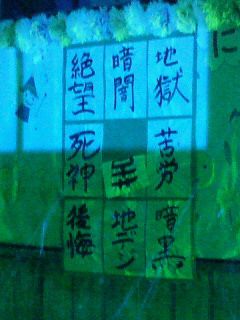 に
地獄
苦労
暗黒
暗闇
地デン
絶望
死神
後悔